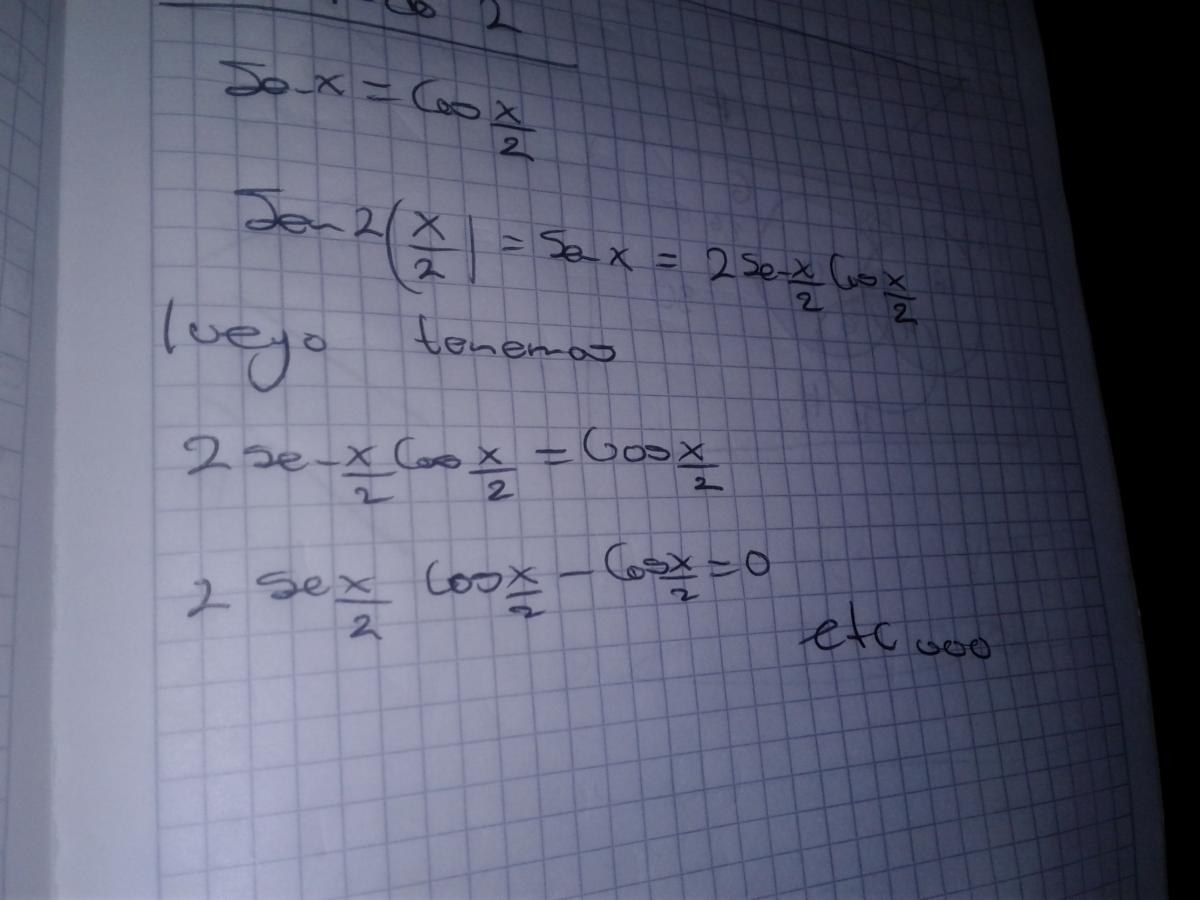 2
Sen x = Cos x/2
Sen 2(x/2) = Sen x = 2 Sen x/2 Cos x/2
luego tenemos
2 sen x/2 Cos x/2 = Cos x/2
2 Se x/2 Cos x/2 - Cos x/2 = 0
etc...